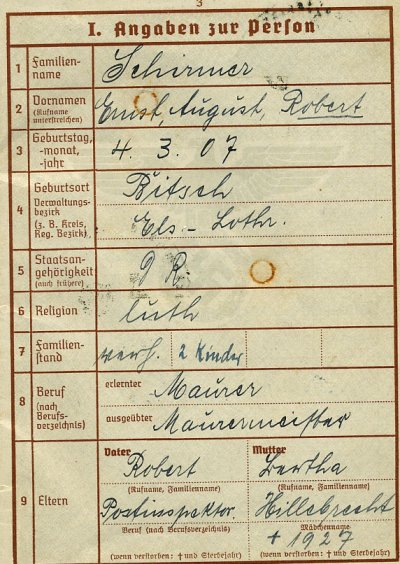 3
I. Angaben zur Person
1 Familien-
name Schirmer
2 Vornamen
(Rufname
unterstreichen) Ernst, August, Robert
3 Geburtstag,
-monat,
-jahr 4. 3. 07
4 Geburtsort Bitsch
Verwaltungs-
bezirk
(z. B. Kreis,
Reg. Bezirk) Els.-Lothr.
5 Staatsan-
gehörigkeit
(auch frühere) D R.
6 Religion luth
7 Familien-
stand verh. 2 Kinder
8 Beruf
(nach
Berufs-
verzeichnis)
erlernter Maurer
ausgeübter Maurermeister
9 Eltern
Vater
Robert
(Rufname, Familienname)
Postinspektor
Beruf (nach Berufsverzeichnis)
(wenn verstorben: † und Sterbejahr)
Mutter
Bertha
(Rufname, Familienname)
Hillebrecht
Mädchenname
† 1927
(wenn verstorben: † und Sterbejahr)